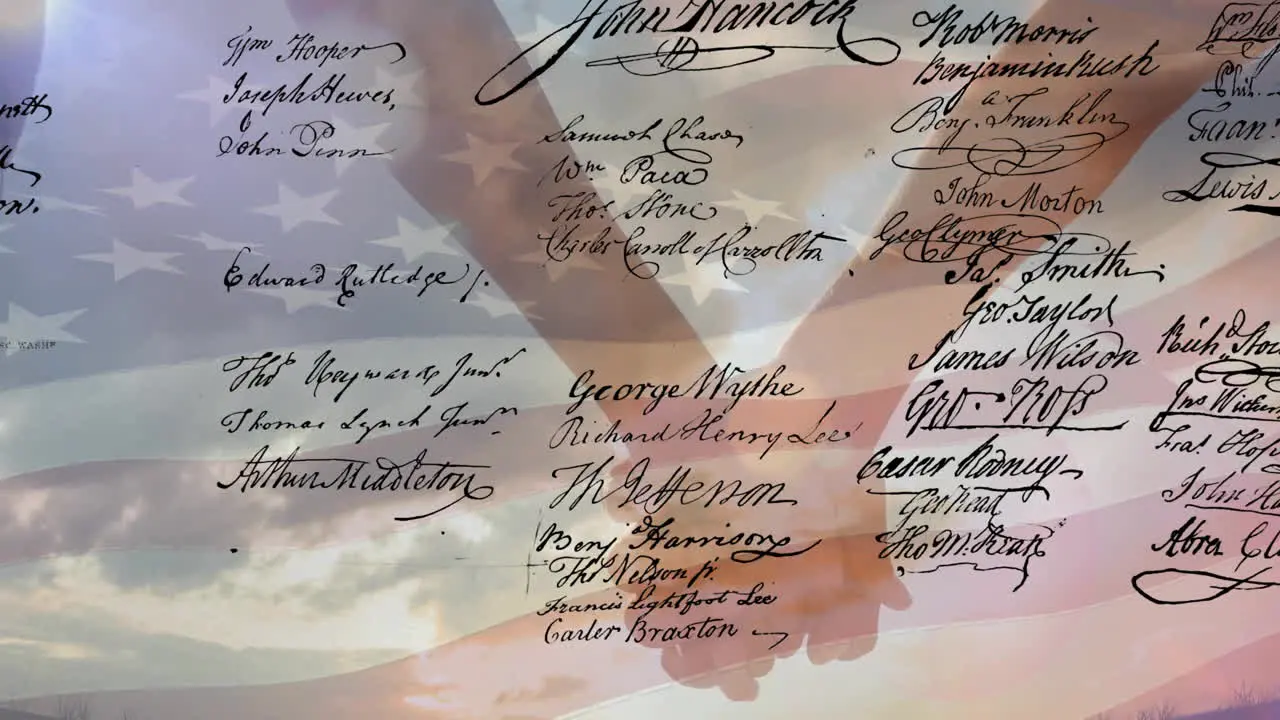 Wm Hooper
Joseph Hewes,
John Penn
Edward Rutledge Jr.
Thos Heyward Junr.
Thomas Lynch Junr.
Arthur Middleton
John Hancock
Samuel Chase
Wm Paca
Thos. Stone
Charles Carroll of Carrollton
George Wythe
Richard Henry Lee
Th Jefferson
Benja Harrison
Thos Nelson jr.
Francis Lightfoot Lee
Carter Braxton
Robt Morris
Benjamin Rush
Benja. Franklin
John Morton
Geo Clymer
Jas. Smith
Geo. Taylor
James Wilson
Geo. Ross
Caesar Rodney
Geo Read
Tho M:Kean
Phil.
Lewis
Richd. Stoc
Jno Wither
Fras. Hop
John H
Abra Cl